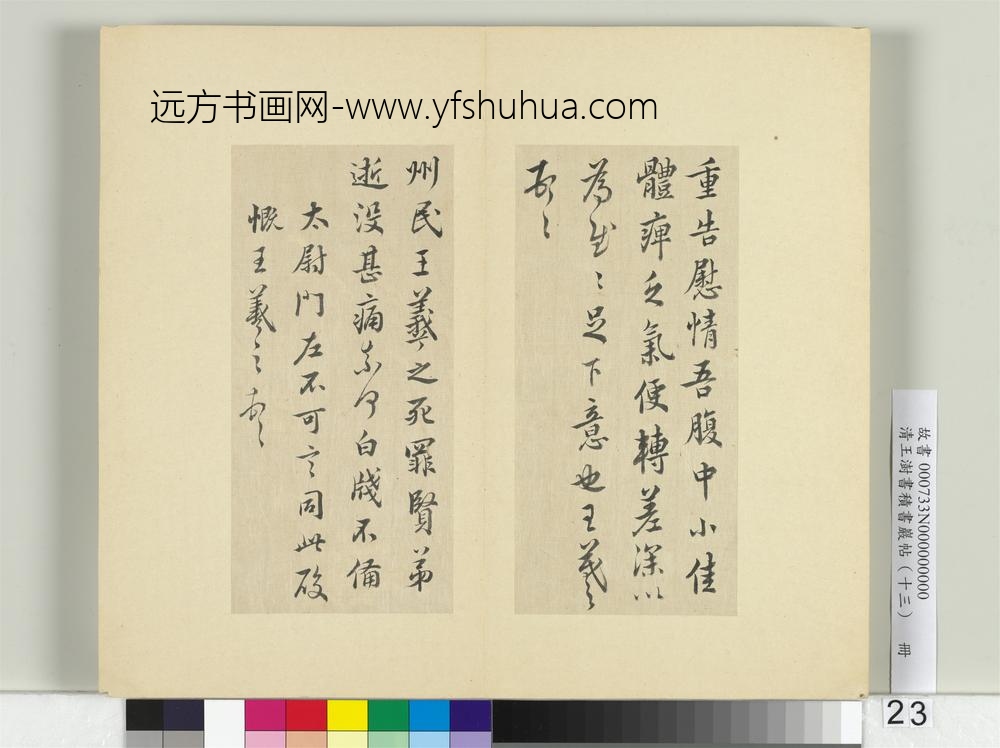 远方书画网-www.yfshuhua.com
重告慰情吾腹中小佳
體痺乏氣便轉差深以
為慰〻足下意也王羲〻
頓〻
州民王羲之死罪賢弟
逝没甚痛奈何白牋不備
太尉門左不可言同此破
慨王羲之頓〻
故書 000733N000000000
清王澍書積書巖帖(十三) 冊
23